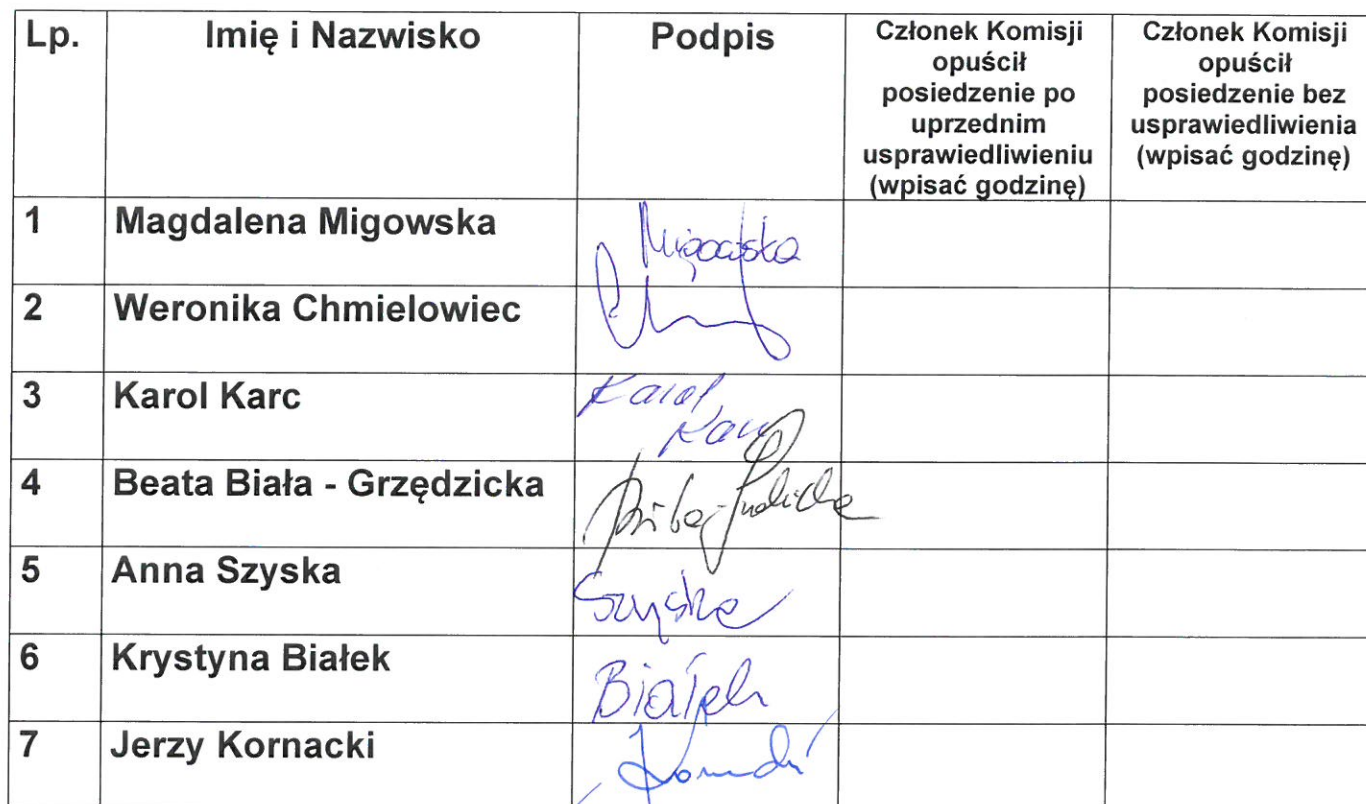 Lp.
Imię i Nazwisko
Podpis
Członek Komisji
opuścił
posiedzenie po
uprzednim
usprawiedliwieniu
(wpisać godzinę)
Członek Komisji
opuścił
posiedzenie bez
usprawiedliwienia
(wpisać godzinę)
1 Magdalena Migowska Migowska
2 Weronika Chmielowiec
3 Karol Karc Karol
Karc
4 Beata Biała - Grzędzicka
5 Anna Szyska Szyska
6 Krystyna Białek Białek
7 Jerzy Kornacki